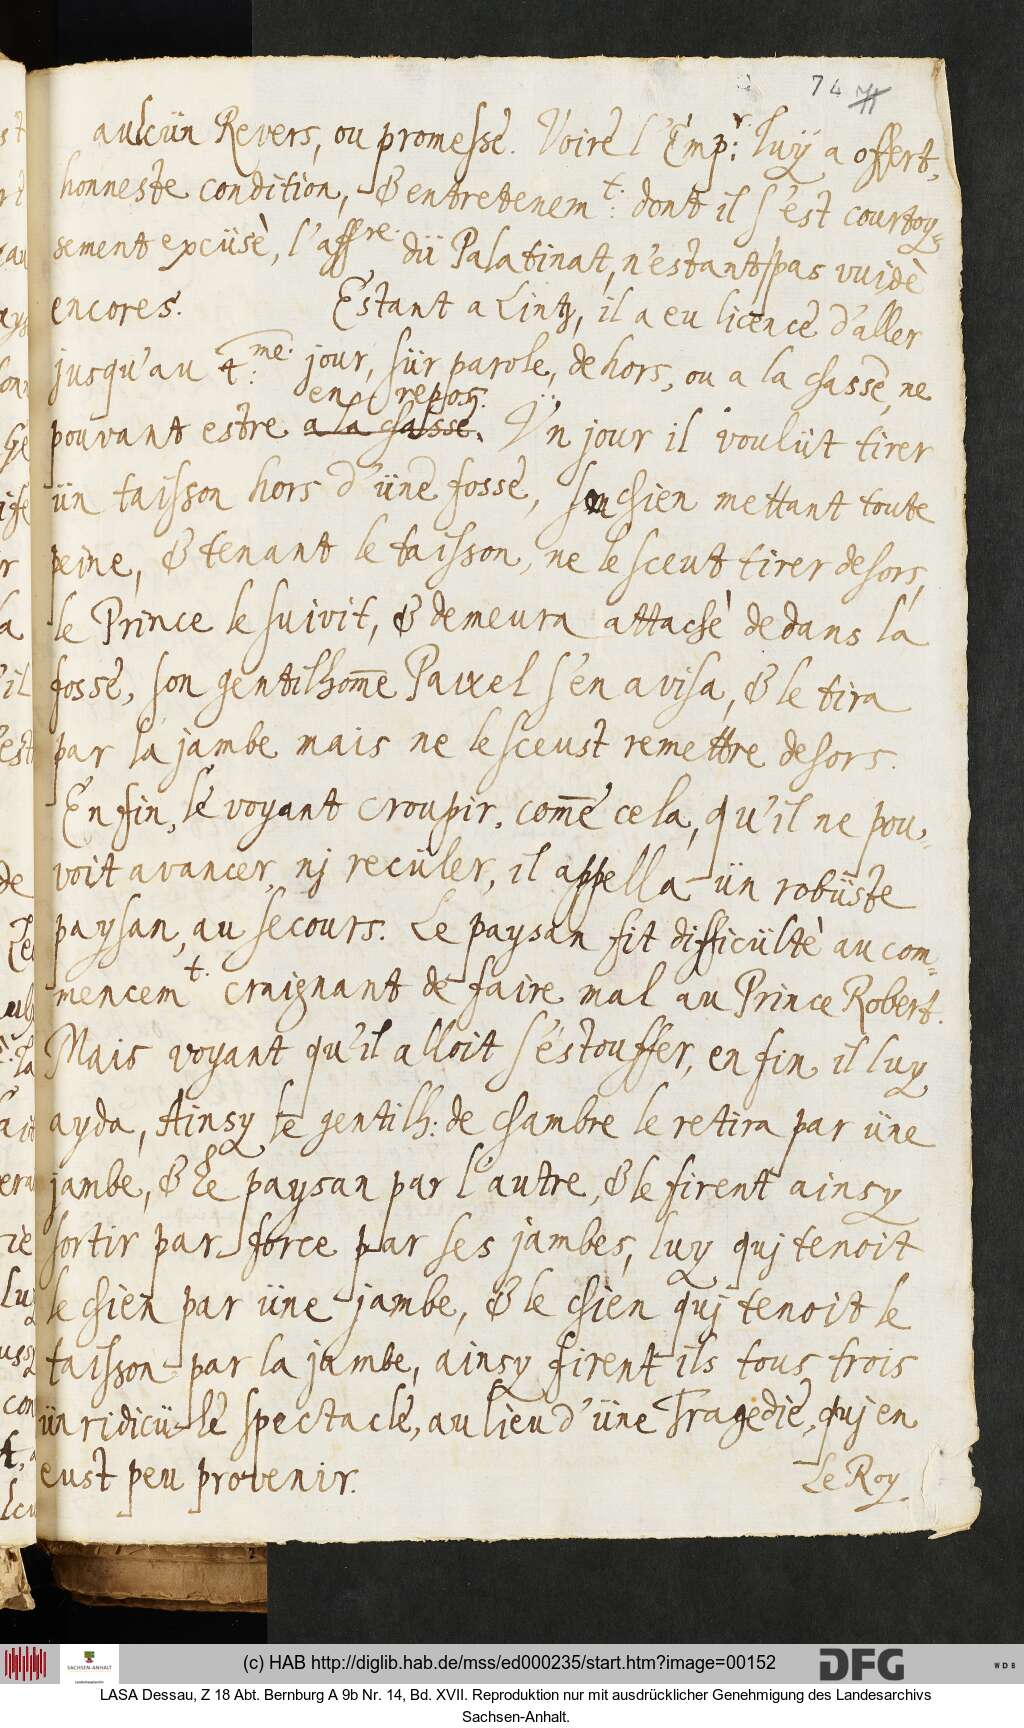 74
aulcün Revers, ou promesse. Voire l'Emp.r: luÿ a offert,
honneste condition, & entretenem.t: dont il s'est courtoy=
sement excüsè, l'aff.re dü Palatinat, n'estant pas vuidè
encores. Estant a Lintz, il a eu licence d'aller
jusqu'au 4.me: jour, sür parole, dehors, ou a la chasse, ne
en repos.
pouvant estre a la chasse. Ün jour il voulüt tirer
ün taisson hors d'üne fosse, son chien mettant toute
peine, & tenant le taisson, ne le sceut tirer dehors,
le Prince le suivit, & demeura attachè dedans la
fosse, son gentilhom̄e Paixel s'en avisa, & le tira
par la jambe mais ne le sceust remettre dehors.
En fin, le voyant croupir, com̄e cela, qu'il ne pou=
voit avancer, nj recüler, il appella ün robüste
paysan, au secours. Le paysan fit difficültè au com=
mencem.t craignant de faire mal au Prince Robert.
Mais voyant qu'il alloit s'estouffer, en fin il luy
ayda, Ainsy le gentilh: de chambre le retira par üne
jambe, & le paysan par l'autre, & le firent ainsy
sortir par force par ses jambes, luy quj tenoit
le chien par üne jambe, & le chien quj tenoit le
taisson par la jambe, ainsy firent ils tous trois
ün ridicüle spectacle, au lieu d'üne Tragedie, quj en
eust peu provenir.
Le Roy
(c) HAB http://diglib.hab.de/mss/ed000235/start.htm?image=00152
SACHSEN-ANHALT
DFG
WDB
LASA Dessau, Z 18 Abt. Bernburg A 9b Nr. 14, Bd. XVII. Reproduktion nur mit ausdrücklicher Genehmigung des Landesarchivs
Sachsen-Anhalt.